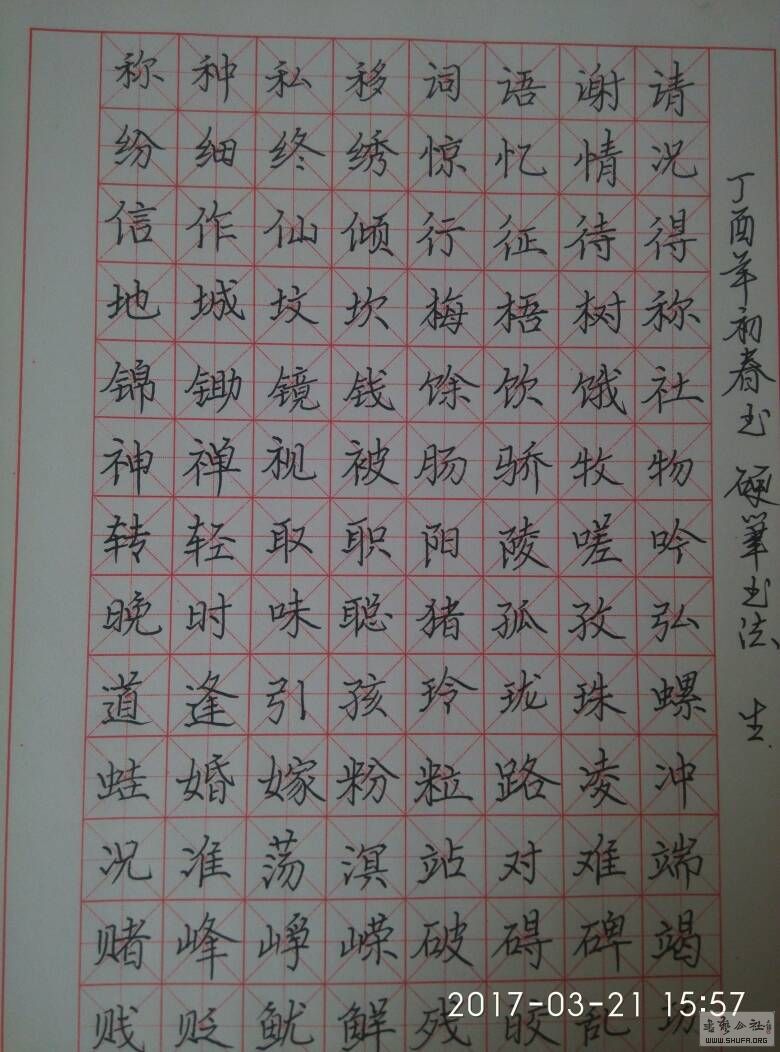 称种私移词语谢请
纷细终绣惊忆情况
信作仙倾行征待得
地城坟坎梅梧树称
锦锄镜钱馀饮饿社
神禅视被肠骄牧物
转轻取职阳陵嗟吟
晚时味聪猪孤孜弘
道逢引孩玲珑珠螺
蛙婚嫁粉粒路凌冲
况准荡溟站对难端
赌峰峥嵘破碍碑竭
贱贬鱿鲜残皎乱功
丁酉年初春书 硬筆书法 生
2017-03-21 15:57
WWW.SHUFA.ORG